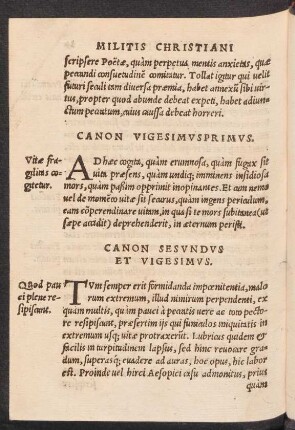 MILITIS CHRISTIANI
scripsere Poëtæ, quàm perpetua mentis anxietas, quæ
peccandi consuetudinẽ comitatur. Tollat igitur qui uelit
futuri seculi tam diuersa præmia, habet annexũ sibi uir-
tus, propter quod abunde debeat expeti, habet adiun-
ctum peccatum, cuius caussa debeat horreri.
CANON VIGESIMVSPRIMVS.
Vitæ fra-
gilitas co-
gitetur.
AD hæc cogita, quàm ærumnosa, quàm fugax sit
uita præsens, quàm undiq; imminens insidiosa
mors, quàm passim opprimit inopinantes. Et cum nemo
uel de momẽto uitæ sit securus, quàm ingens periculum,
eam cõperendinare uitam, in qua si te mors subitanea (ut
sæpe accidit) deprehenderit, in æternum perísti.
CANON SESVNDVS
ET VIGESIMVS.
Quod pau
ci plene re-
sipiscunt.
TVm semper erit formidanda impœnitentia, malo
rum extremum, illud nimirum perpendenti, ex
quàm multis, quàm pauci à peccatis uere ac toto pecto-
re resipiscunt, præsertim ijs qui funiculos iniquitatis in
extremum usq; uitæ protraxerint. Lubricus quidem et
facilis in turpitudinem lapsus, sed hinc reuocare gra-
dum, superasq; euadere ad auras, hoc opus, hic labor
est. Proinde uel hirci Aesopici casu admonitus, prius
quàm